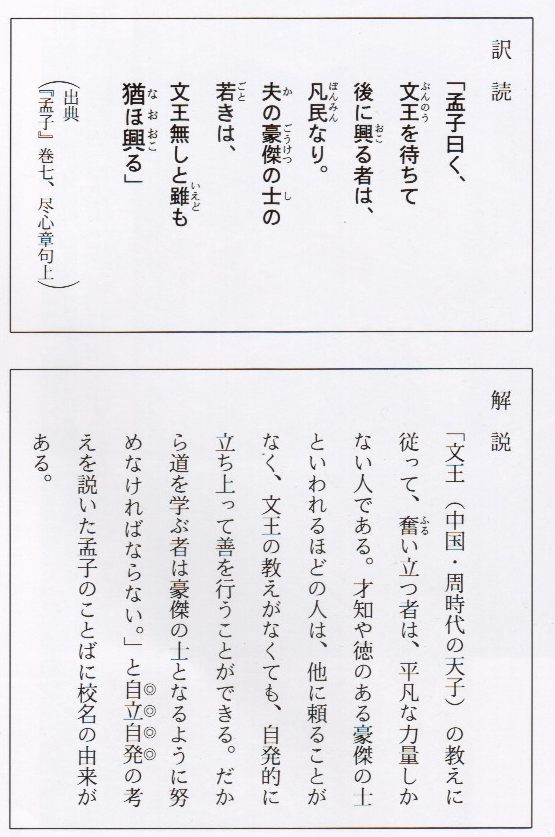 訳読
「孟子曰く、
文王を待ちて
後に興る者は、
凡民なり。
夫の豪傑の士の
若きは、
文王無しと雖も
猶ほ興る」
（出典
『孟子』巻七、尽心章句上）
解説
「文王（中国・周時代の天子）の教えに
従って、奮い立つ者は、平凡な力量しか
ない人である。才知や徳のある豪傑の士
といわれるほどの人は、他に頼ることが
なく、文王の教えがなくても、自発的に
立ち上って善を行うことができる。だか
ら道を学ぶ者は豪傑の士となるように努
めなければならない。」と自立自発の考
えを説いた孟子のことばに校名の由来が
ある。